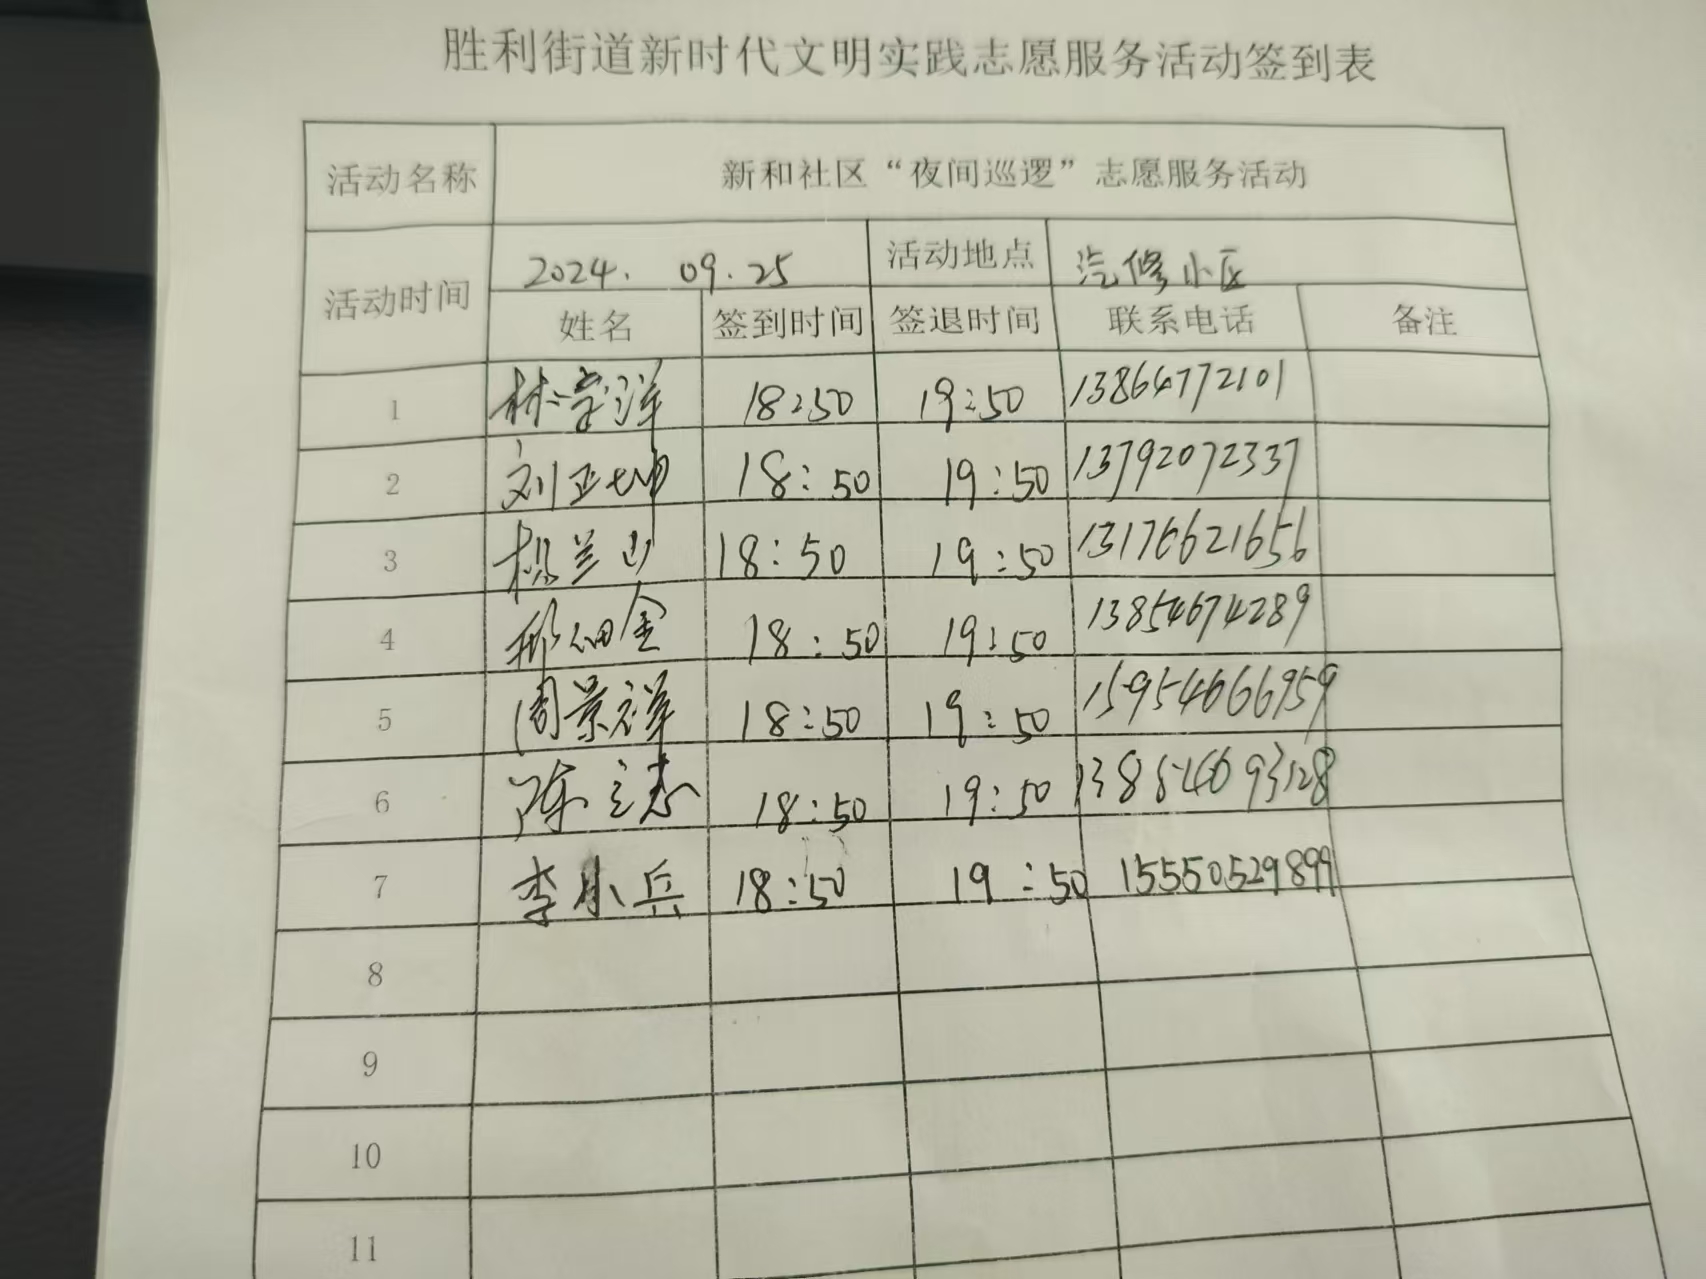 胜利街道新时代文明实践志愿服务活动签到表
活动名称 新和社区“夜间巡逻”志愿服务活动
活动时间 2024.09.25 活动地点 汽修小区
姓名 签到时间 签退时间 联系电话 备注
1 林学洋 18:50 19:50 13864772101
2 刘正坤 18:50 19:50 13792072337
3 杨兰山 18:50 19:50 13176621656
4 邢细金 18:50 19:50 13854674289
5 周景祥 18:50 19:50 15954666959
6 陈立志 18:50 19:50 13854693128
7 李小兵 18:50 19:50 15550529899
8
9
10
11